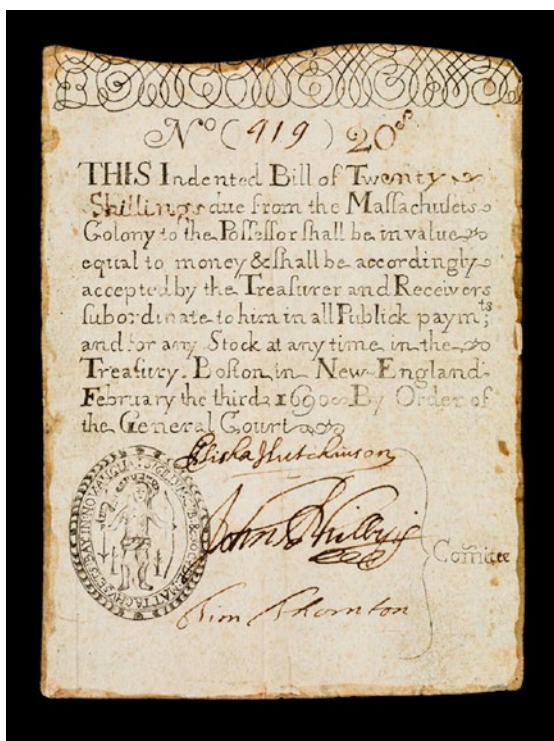 No (919) 20s
THIS Indented Bill of Twenty
Shillings due from the Massachusets
Colony to the Possessor shall be in value
equal to money & shall be accordingly
accepted by the Treasurer and Receivers
subordinate to him in all Publick paymts;
and for any Stock at any time in the
Treasury. Boston in New England
February the third 1690 By Order of
the General Court
Elisha Hutchinson
John Phillips
Tim Thornton
Comitee
SIGILLUM GUB & SOC DE MATTACHUSETS BAY IN NOVA ANGLIA